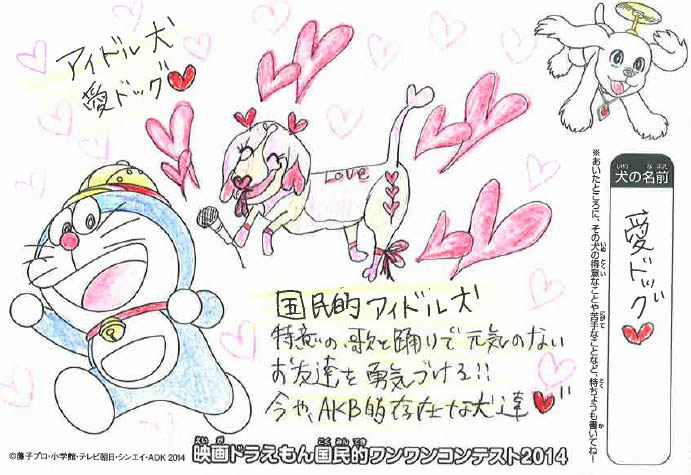 アイドル犬
愛ドッグ♥
Love
国民的アイドル犬
特意の、歌と踊りで元気のない
お友達を勇気づける!!
今や、AKB的存在な犬達♥
いぬ な まえ
犬の名前
愛ドッグ♥
※あいたところに、その犬の得意なことや苦手なことなど、特ちょうも書いてね!
©藤子プロ・小学館・テレビ朝日・シンエイ・ADK 2014
映画ドラえもん国民的ワンワンコンテスト2014